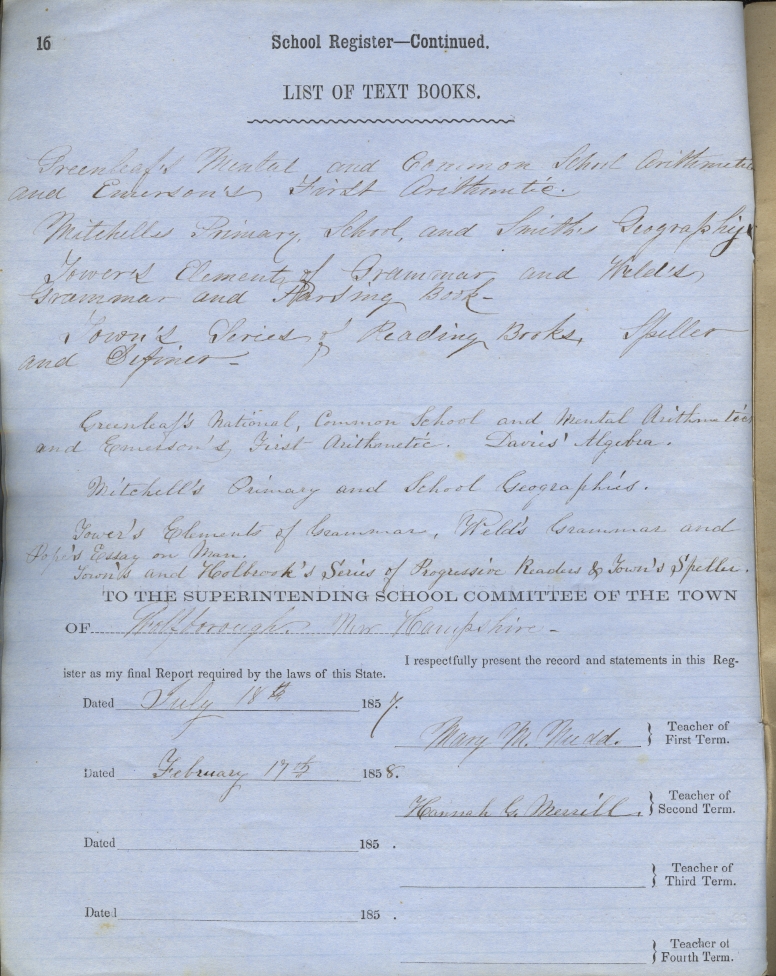 16
School Register—Continued.
LIST OF TEXT BOOKS.
Greenleaf's Mental and Common School Arithmetic
and Emerson's First Arithmetic.
Mitchelles Primary, School, and Smith's Geography
Tower's Elements of Grammar and Weld's
Grammar and Parsing Book-
Town's Series of Reading Books, Speller
and Definer-
Greenleaf's National, Common School and Mental Arithmetics
and Emerson's, First Arithmetic. Davies' Algebra.
Mitchell's Primary and School Geographies.
Tower's Elements of Grammar, Weld's Grammar and
Pope's Essay on Man.
Town's and Holbrook's Series of Progressive Readers & Town's Speller.
TO THE SUPERINTENDING SCHOOL COMMITTEE OF THE TOWN
OF Wolfborough. New Hampshire-
I respectfully present the record and statements in this Reg-
ister as my final Report required by the laws of this State.
Dated July 18th 1857.
Mary M. Nudd. } Teacher of
First Term.
Dated February 17th 1858.
Hannah G. Merrill. } Teacher of
Second Term.
Dated 185 .
} Teacher of
Third Term.
Dated 185 .
} Teacher of
Fourth Term.